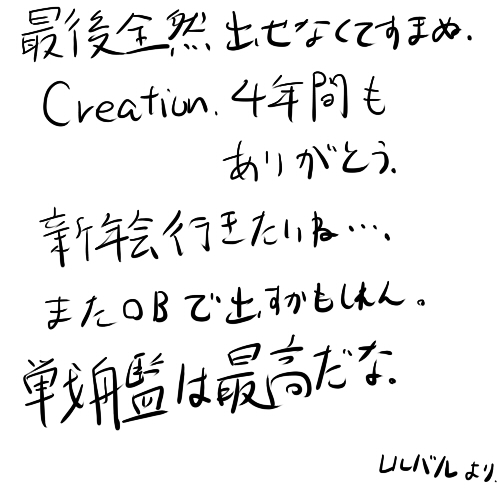 最後全然出せなくてすまぬ.
Creation. 4年間も
ありがとう.
新年会行きたいね….
またOBで出すかもしれん。
戦艦は最高だな.
ルルバルより.